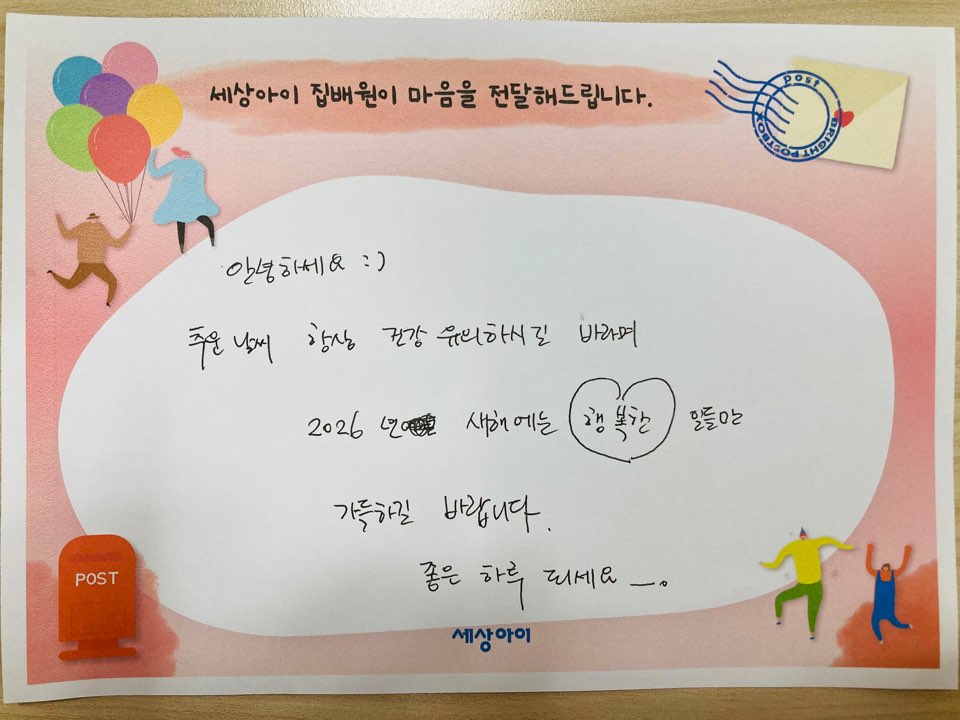 세상아이 집배원이 마음을 전달해드립니다.
Post
BRIGHT POSTBOX
안녕하세요 :)
추운 날씨 항상 건강 유의하시길 바라며
2026 년 새해에는 행복한 일들만
가득하길 바랍니다.
좋은 하루 되세요 ㅡ.
POST
세상아이